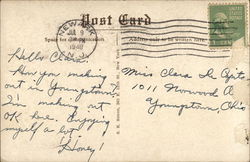 Post Card
NEW YORK
JUL 9
1940
Address only to be written here.
Hello Clara,
How you making
out in Youngstown?
I'm making out
OK here. Enjoying
myself a lot.
Honey!
Miss Clara
1011 Norwood A
Youngstown, Ohio